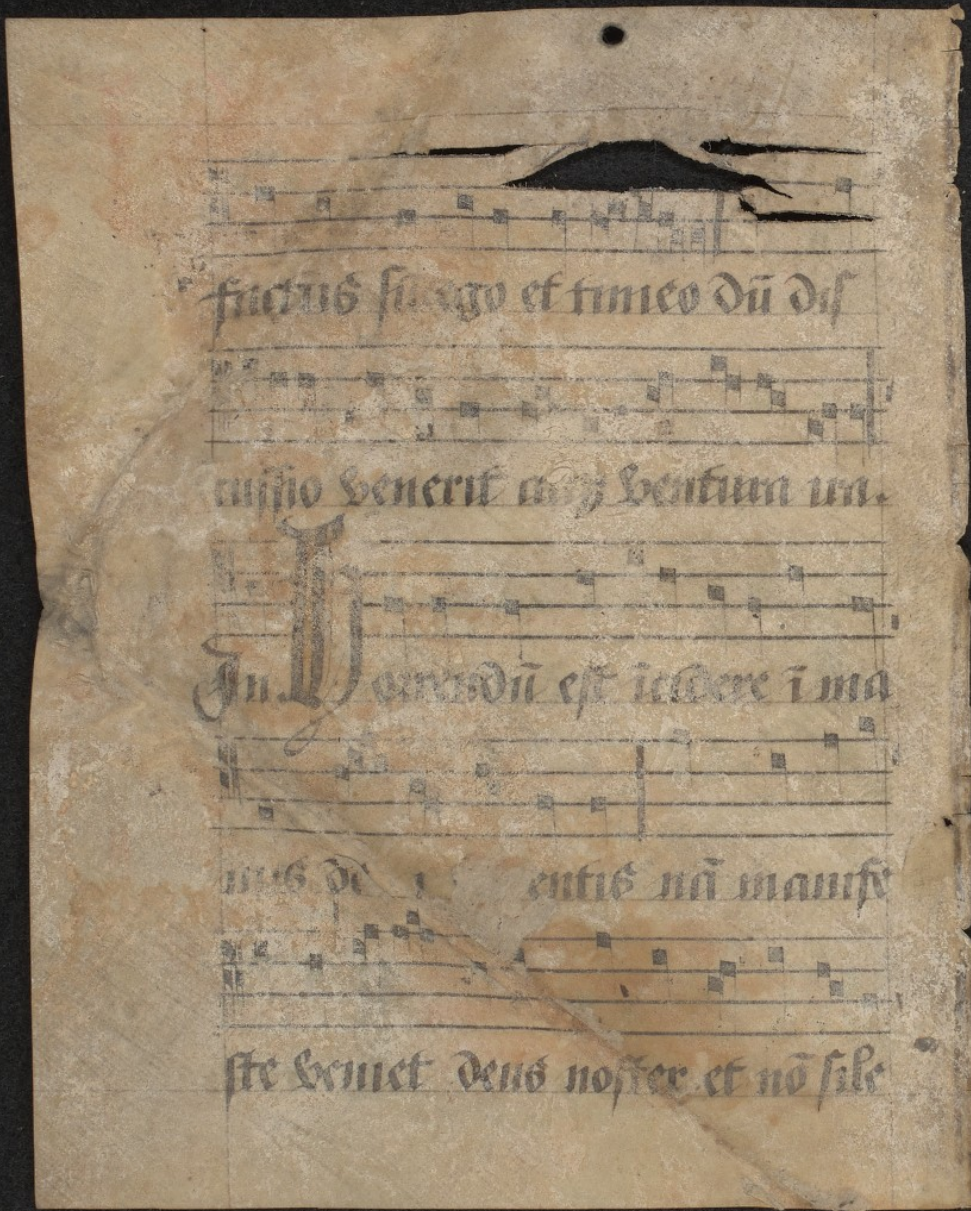 factus su ego et timeo dū dis
cussio venerit atqz ventura ira.
In. Horrendū est īcidere ī ma
nus de entis nā manife
ste veniet deus noster et nō sile